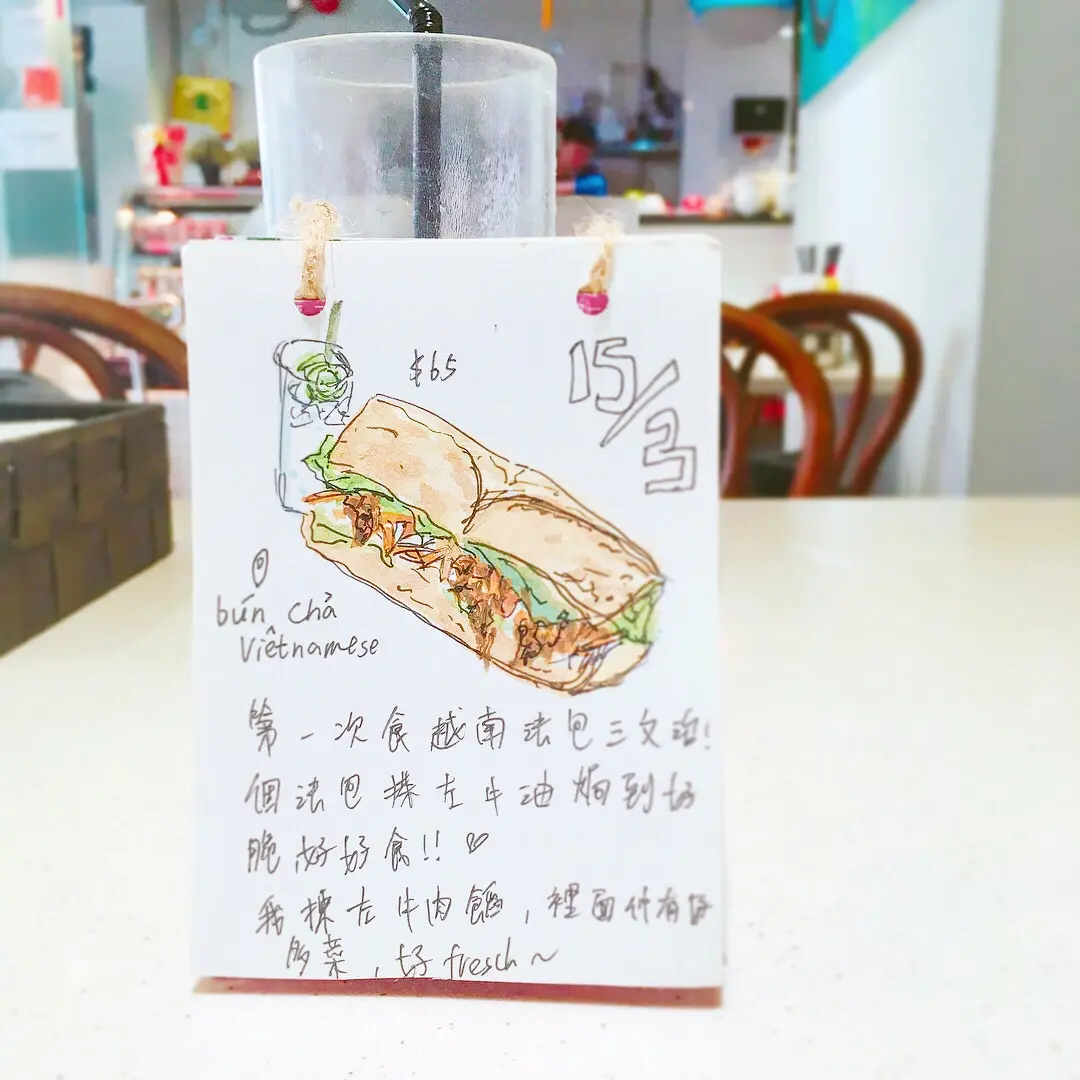 $65
15/3
bún chả
Viêtnamese
第一次食越南法包三文治!
個法包搽左牛油焗到好
脆好好食!! ♡
我揀左牛肉餡,裡面仲有好
多菜,好fresch~